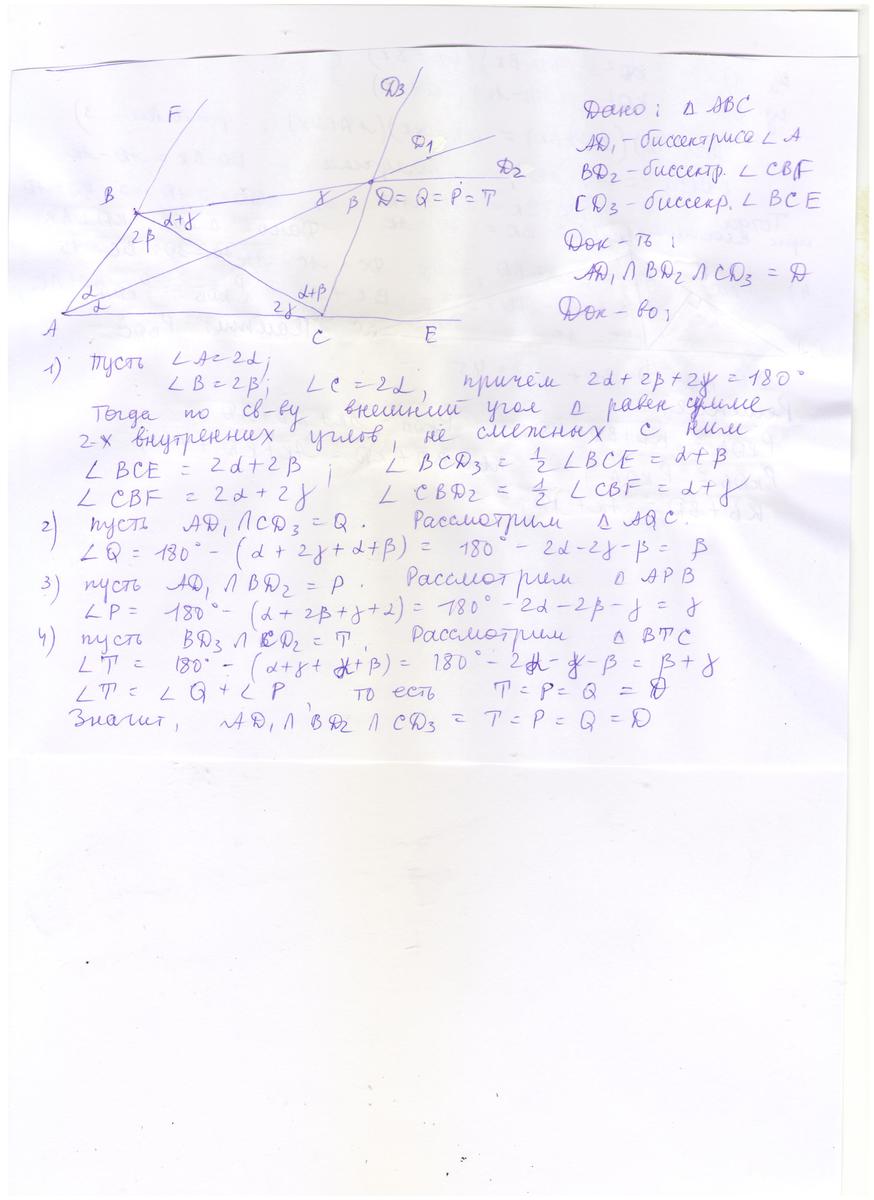 D3
F
D1
D2
B
γ
β
D = Q = P = T
α+γ
2β
α
α
2γ
α+β
A
C
E
Дано: Δ ABC
AD₁ - биссектриса ∠ A
BD₂ - биссектр. ∠ CBF
CD₃ - биссекр. ∠ BCE
Док-ть:
AD₁ ∩ BD₂ ∩ CD₃ = D
Док-во:
1) Пусть ∠A=2α;
∠B=2β; ∠C=2α, причём 2α+2β+2γ=180°
Тогда по св-ву внешний угол Δ равен сумме
2-х внутренних углов, не смежных с ним
∠ BCE = 2α+2β ; ∠ BCD₃ = ½ ∠BCE = α+β
∠ CBF = 2α+2γ ∠ CBD₂ = ½ ∠ CBF = α+γ
2) пусть AD₁ ∩ CD₃ = Q. Рассмотрим Δ AQC.
∠Q = 180° - (α + 2γ + α+β) = 180° - 2α-2γ-β = β
3) пусть AD₁ ∩ BD₂ = P. Рассмотрим Δ APB
∠P = 180° - (α + 2β + γ + α) = 180° - 2α - 2β - γ = γ
4) пусть BD₃ ∩ CD₂ = T, Рассмотрим Δ BTC
∠T = 180° - (α+γ + α+β) = 180° - 2α - γ - β = β + γ
∠T = ∠Q + ∠P, то есть T = P = Q = D
Значит, AD₁ ∩ BD₂ ∩ CD₃ = T = P = Q = D